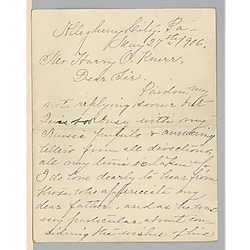 Allegheny City, Pa-
May 27th, 1906.
Mr Harry C. Knerr,
Dear Sir.
Pardon my
not replying sooner but
I was so busy with my
Music pupils & answering
letters from all directions,
all my time is taken up
I do love dearly to hear from
those who appreciate my
dear father, and as he was
very particular about con-
sidering the wishes of his